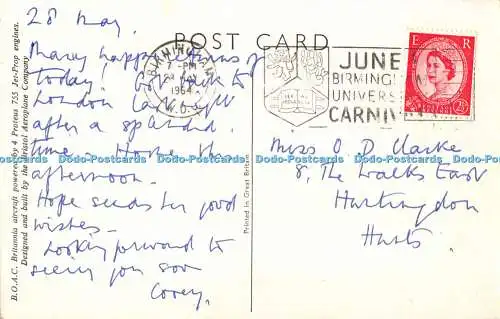 28 May.
Many happy returns of
today. Got back to
London last night
after a splendid
time. Home this
afternoon.
Hope sends her good
wishes -
Looking forward to
seeing you soon
B.O.A.C. Britannia aircraft powered by 4 Proteus 755 Jet-Prop engines.
Designed and built by the Bristol Aeroplane Company
POST CARD
BIRMINGHAM
7 - PM
28 MAY
1964
JUNE
BIRMINGH
UNIVERS
CARNIV
E R
Printed in Great Britain
Miss O D Clarke
8 The Walks East
Huntingdon
Hunts
Dodo-Postcards Dodo-Postcards Dodo-Postcards Dodo-Postcards Dodo-Postcards Dodo-Postcards